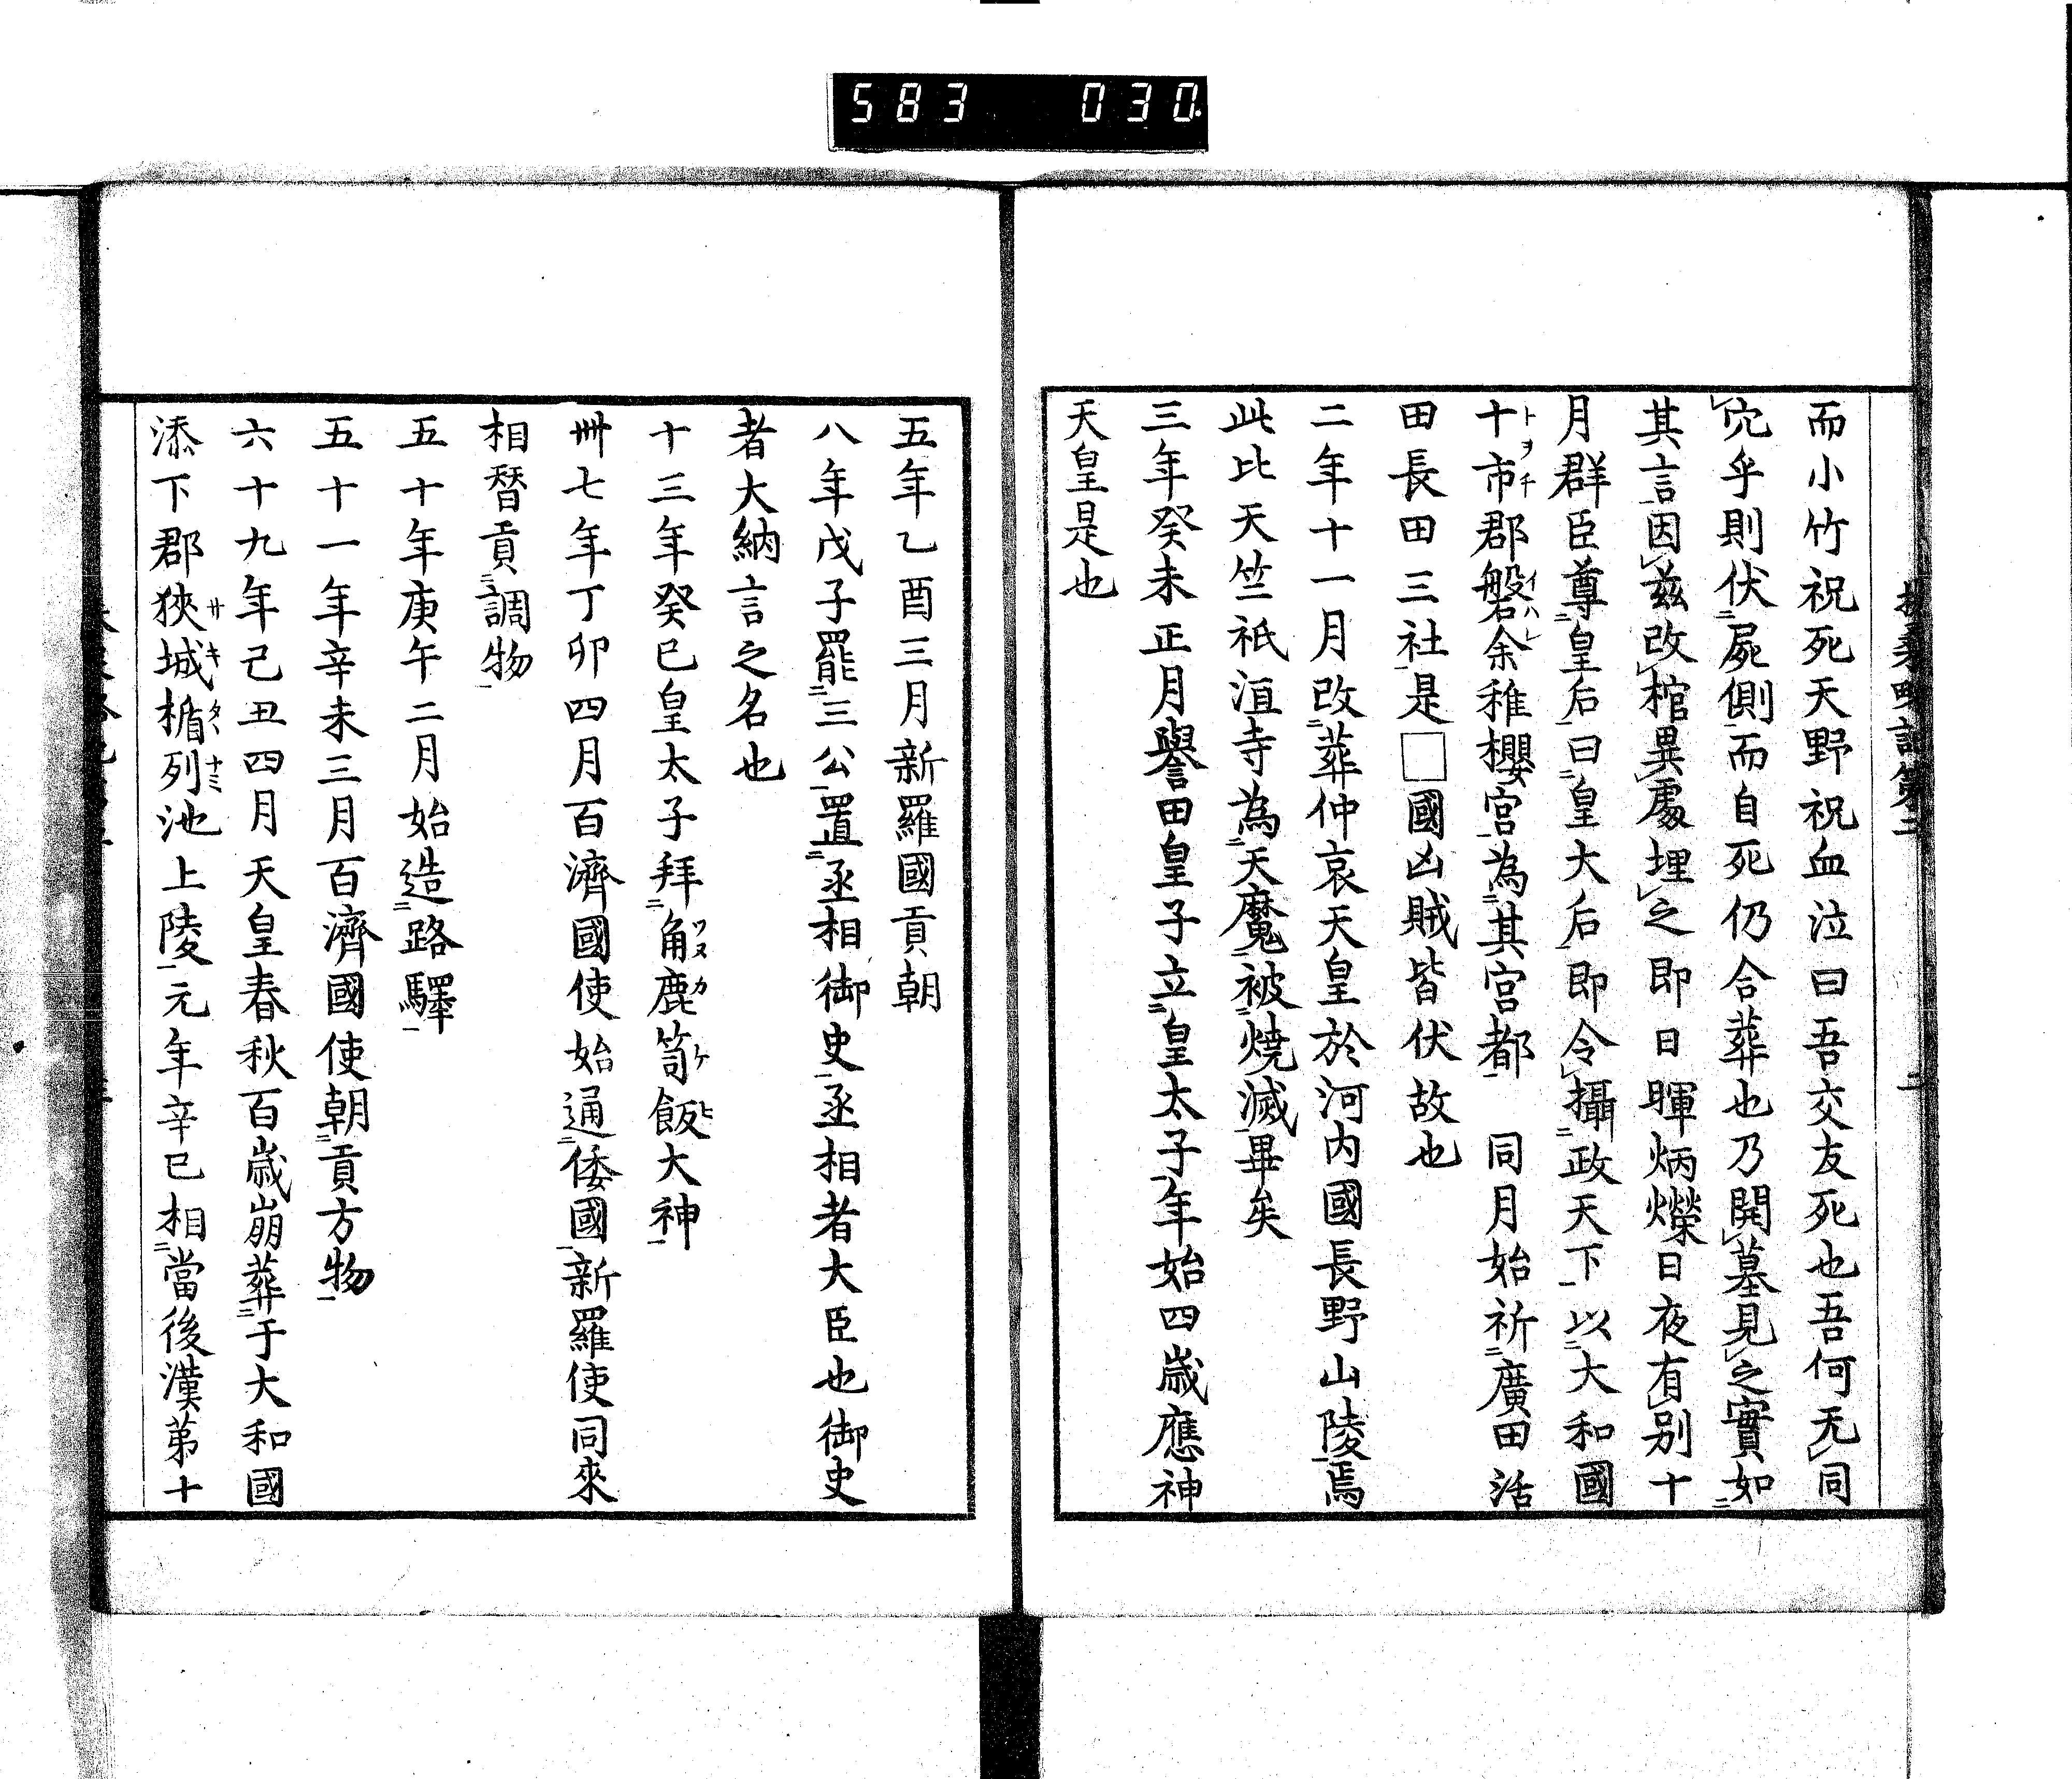 583 030
而小竹祝死天野祝血泣曰吾交友死也吾何无同
穴乎則伏屍側而自死仍合葬也乃開墓見之實如
其言因茲改棺異處埋之即日暉炳爃日夜有別十
月群臣尊皇后曰皇大后即令攝政天下以大和國
十市郡磐余稚櫻宮為其宮都 同月始祈廣田活
田長田三社是□國凶賊皆伏故也
二年十一月改葬仲哀天皇於河内國長野山陵焉
此比天竺祇洹寺為天魔被燒滅畢矣
三年癸未正月譽田皇子立皇太子年始四歲應神
天皇是也
五年乙酉三月新羅國貢朝
八年戊子罷三公置丞相御史丞相者大臣也御史
者大納言之名也
十三年癸巳皇太子拜角鹿笥飯大神
卌七年丁卯四月百濟國使始通倭國新羅使同來
相朁貢調物
五十年庚午二月始造路驛
五十一年辛未三月百濟國使朝貢方物
六十九年己丑四月天皇春秋百歲崩葬于大和國
添下郡狹城楯列池上陵元年辛巳相當後漢第十